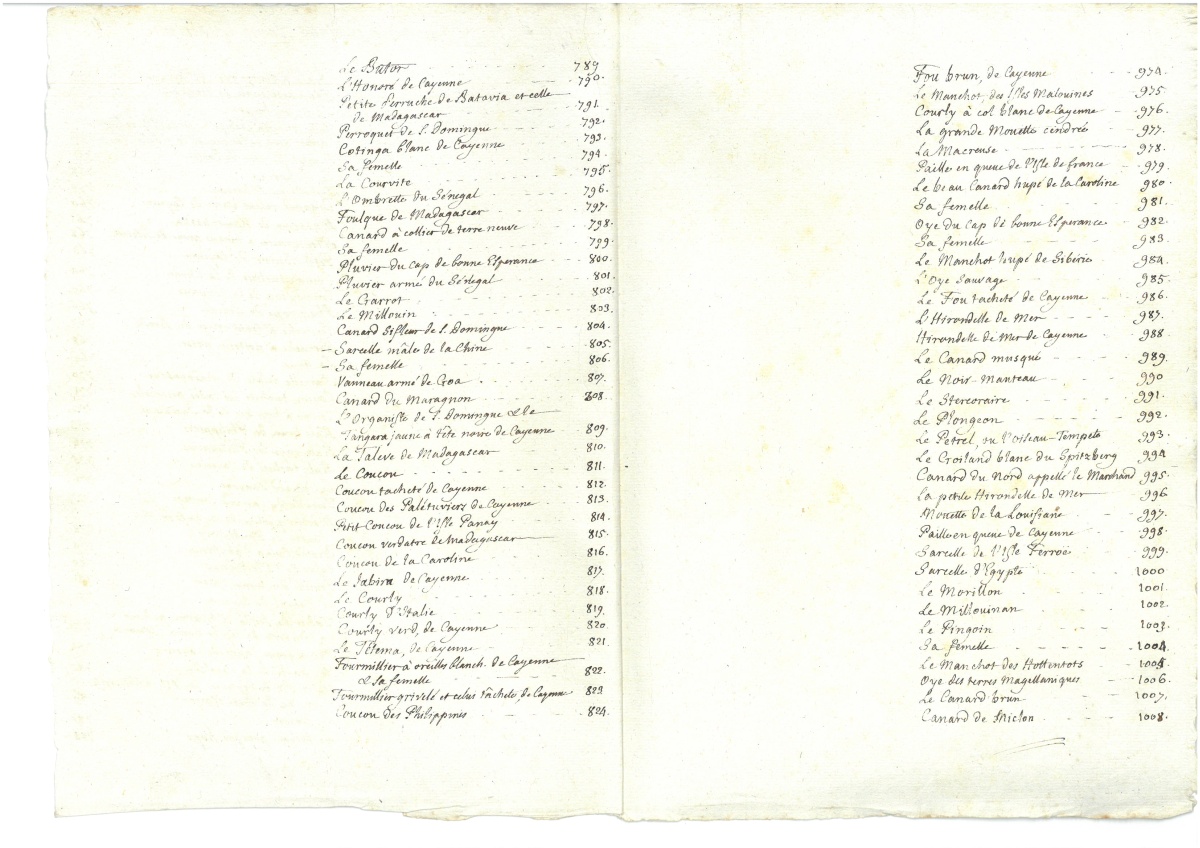 Le Butor 789
L'Honoré de Cayenne 790.
Petite Perruche de Batavia et celle
de Madagascar 791.
Perroquet de S. Domingue 792.
Cotinga blanc de Cayenne 793.
Sa femelle 794.
La Courvite 795.
L'Ombrette du Sénegal 796.
Foulque de Madagascar 797.
Canard à collier de terre neuve 798.
Sa femelle 799.
Pluvier du cap de bonne Esperance 800.
Pluvier armé du Sénegal 801.
Le Garrot 802.
Le Millouin 803.
Canard Sifleur de S. Domingue 804.
Sarcelle mâle de la Chine 805.
Sa femelle 806.
Vanneau armé de Goa 807.
Canard du Maragnon 808.
L'Organiste de S. Domingue & le
Tangara jaune à tête noire de Cayenne 809.
La Taleve de Madagascar 810.
Le Coucou 811.
Coucou tacheté de Cayenne 812.
Coucou des Palétuviers de Cayenne 813.
Petit Coucou de l'Isle Panay 814.
Coucou verdatre de Madagascar 815.
Coucou de la Caroline 816.
Le Jabiru de Cayenne 817.
Le Courly 818.
Courly d'Italie 819.
Courly verd, de Cayenne 820.
Le Tétema, de Cayenne 821.
Fourmillier à oreilles blanch. de Cayenne
& sa femelle 822.
Fourmillier grivelé et celui tacheté, de Cayenne 823
Coucou des Philippines 824.
Fou brun, de Cayenne 974.
Le Manchot, des Isles Malouines 975.
Courly à col blanc de Cayenne 976.
La grande Mouette cendrée 977.
La Macreuse 978.
Paille en queue de l'Isle de france 979.
Le beau Canard hupé de la Caroline 980.
Sa femelle 981.
Oye du Cap de bonne Esperance 982.
Sa femelle 983.
Le Manchot hupé de Sibérie 984.
L'Oye Sauvage 985.
Le Fou tacheté de Cayenne 986.
L'Hirondelle de Mer 987.
Hirondelle de Mer de Cayenne 988
Le Canard musqué 989.
Le Noir-Manteau 990
Le Stercoraire 991.
Le Plongeon 992.
Le Petrel, ou l'Oiseau-Tempete 993.
Le Goiland blanc du Spitzberg 994
Canard du Nord appellé le Marchand 995.
La petite Hirondelle de Mer 996
Mouette de la Louisiane 997.
Paille en queue de Cayenne 998.
Sarcelle de l'Isle Ferroë 999.
Sarcelle d'Egypte 1000
Le Morillon 1001.
Le Millouinan 1002.
Le Pingoin 1003.
Sa femelle 1004.
Le Manchot des Hottentots 1005.
Oye des terres Magellaniques 1006.
Le Canard brun 1007.
Canard de Miclon 1008.